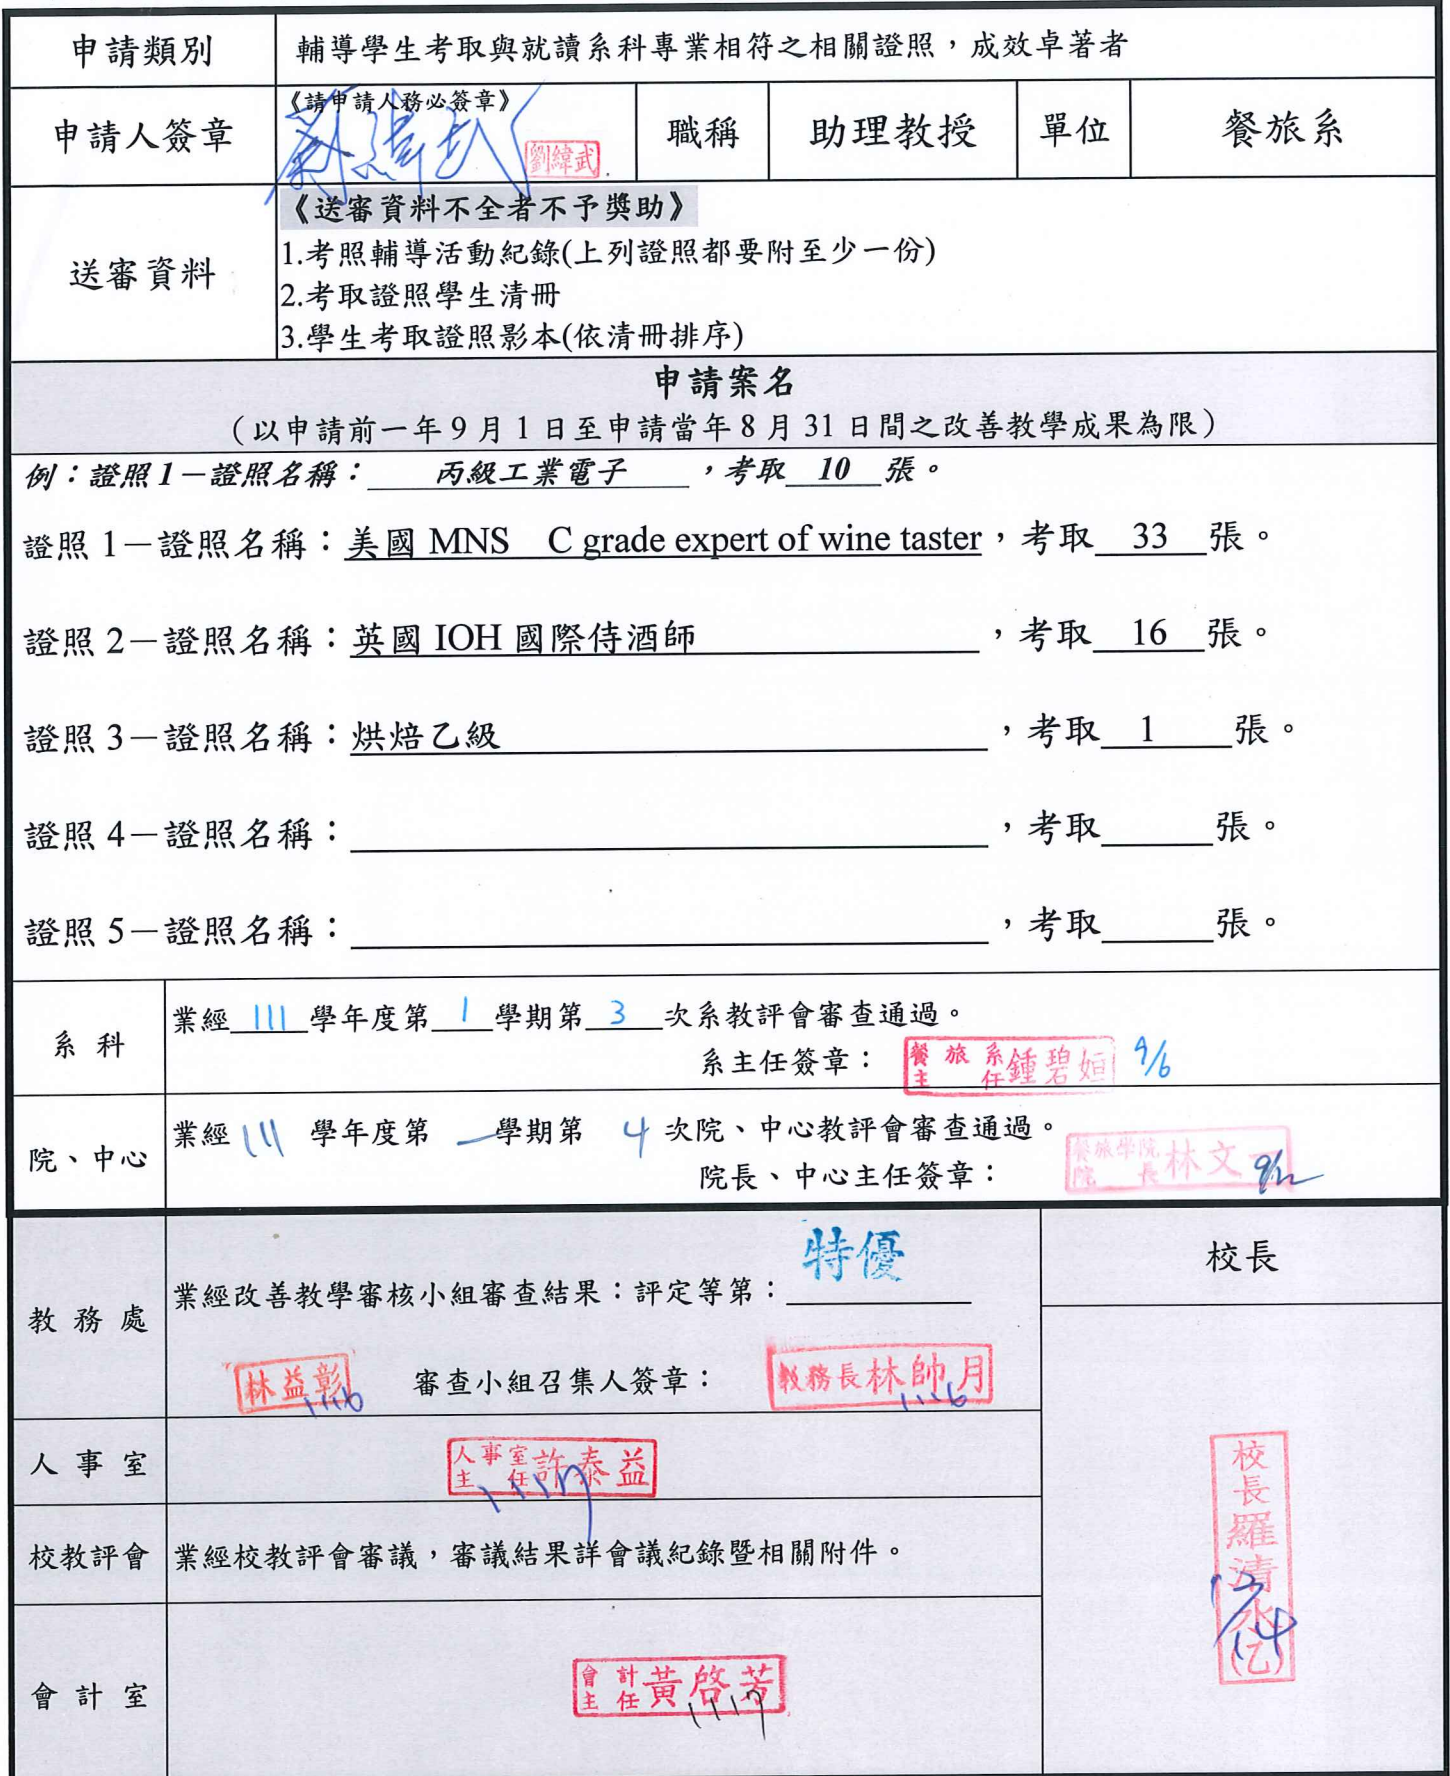 申請類別 輔導學生考取與就讀系科專業相符之相關證照，成效卓著者
申請人簽章 《請申請人務必簽章》 劉緯武 職稱 助理教授 單位 餐旅系
劉緯武
送審資料 《送審資料不全者不予獎助》
1.考照輔導活動紀錄(上列證照都要附至少一份)
2.考取證照學生清冊
3.學生考取證照影本(依清冊排序)
申請案名
（以申請前一年9月1日至申請當年8月31日間之改善教學成果為限）
例：證照1－證照名稱： 丙級工業電子 ，考取 10 張。
證照 1－證照名稱：美國 MNS C grade expert of wine taster，考取 33 張。
證照 2－證照名稱：英國 IOH 國際侍酒師 ，考取 16 張。
證照 3－證照名稱：烘焙乙級 ，考取 1 張。
證照 4－證照名稱： ，考取 張。
證照 5－證照名稱： ，考取 張。
系科 業經 111 學年度第 1 學期第 3 次系教評會審查通過。
系主任簽章： 餐旅系主任鍾碧姮 9/6
院、中心 業經 111 學年度第 一 學期第 4 次院、中心教評會審查通過。
院長、中心主任簽章： 餐旅學院院長林文一 9/12
教務處 業經改善教學審核小組審查結果：評定等第： 特優
林益彰 1116 審查小組召集人簽章： 教務長林帥月 1116
校長
人事室 人事室主任許泰益 1117
校教評會 業經校教評會審議，審議結果詳會議紀錄暨相關附件。
校長羅清水(乙) 12/14
會計室 會計主任黃啓芳 1117